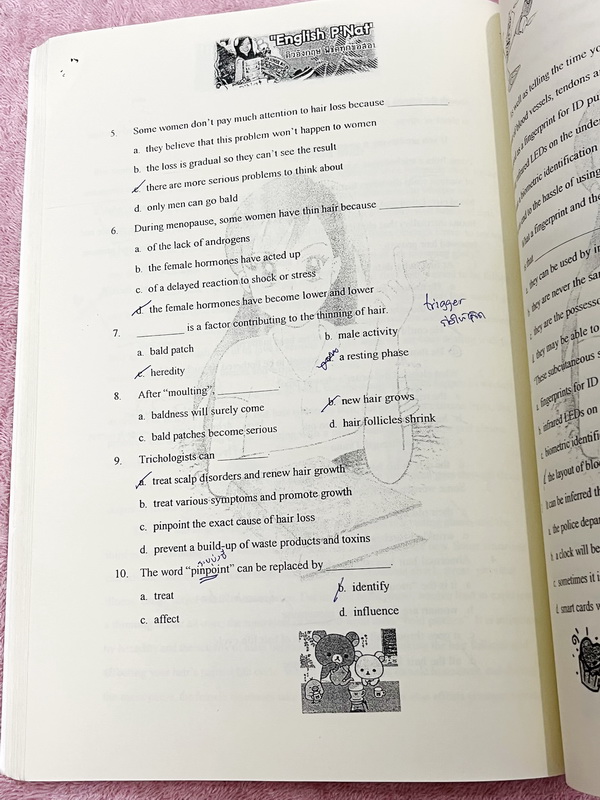 "English P'Nat"
ติวอังกฤษ พิชิตทุกข้อสอบ
5. Some women don't pay much attention to hair loss because ____________
a. they believe that this problem won't happen to women
b. the loss is gradual so they can't see the result
c. there are more serious problems to think about
d. only men can go bald
6. During menopause, some women have thin hair because ____________.
a. of the lack of androgens
b. the female hormones have acted up
c. of a delayed reaction to shock or stress
d. the female hormones have become lower and lower
trigger
ก่อให้เกิด
7. __________ is a factor contributing to the thinning of hair.
a. bald patch b. male activity
c. heredity a resting phase
8. After "moulting", ____________.
a. baldness will surely come b. new hair grows
c. bald patches become serious d. hair follicles shrink
9. Trichologists can __________
a. treat scalp disorders and renew hair growth
b. treat various symptoms and promote growth
c. pinpoint the exact cause of hair loss
d. prevent a build-up of waste products and toxins
ระบุบ่งชี้
10. The word "pinpoint" can be replaced by ____________.
a. treat b. identify
c. affect d. influence
well as telling the time yo
blood vessels, tendons a
as a fingerprint for ID pu
infrared LEDs on the under
biometric identification
end to the hassle of using
a fingerprint and the
they can be used by i
they are never the sa
they are the possess
they may be able to
These subcutaneous s
fingerprints for ID
infrared LEDs on
biometric identifi
the layout of bloo
It can be inferred th
the police depar
a clock will be
sometimes it i
smart cards w